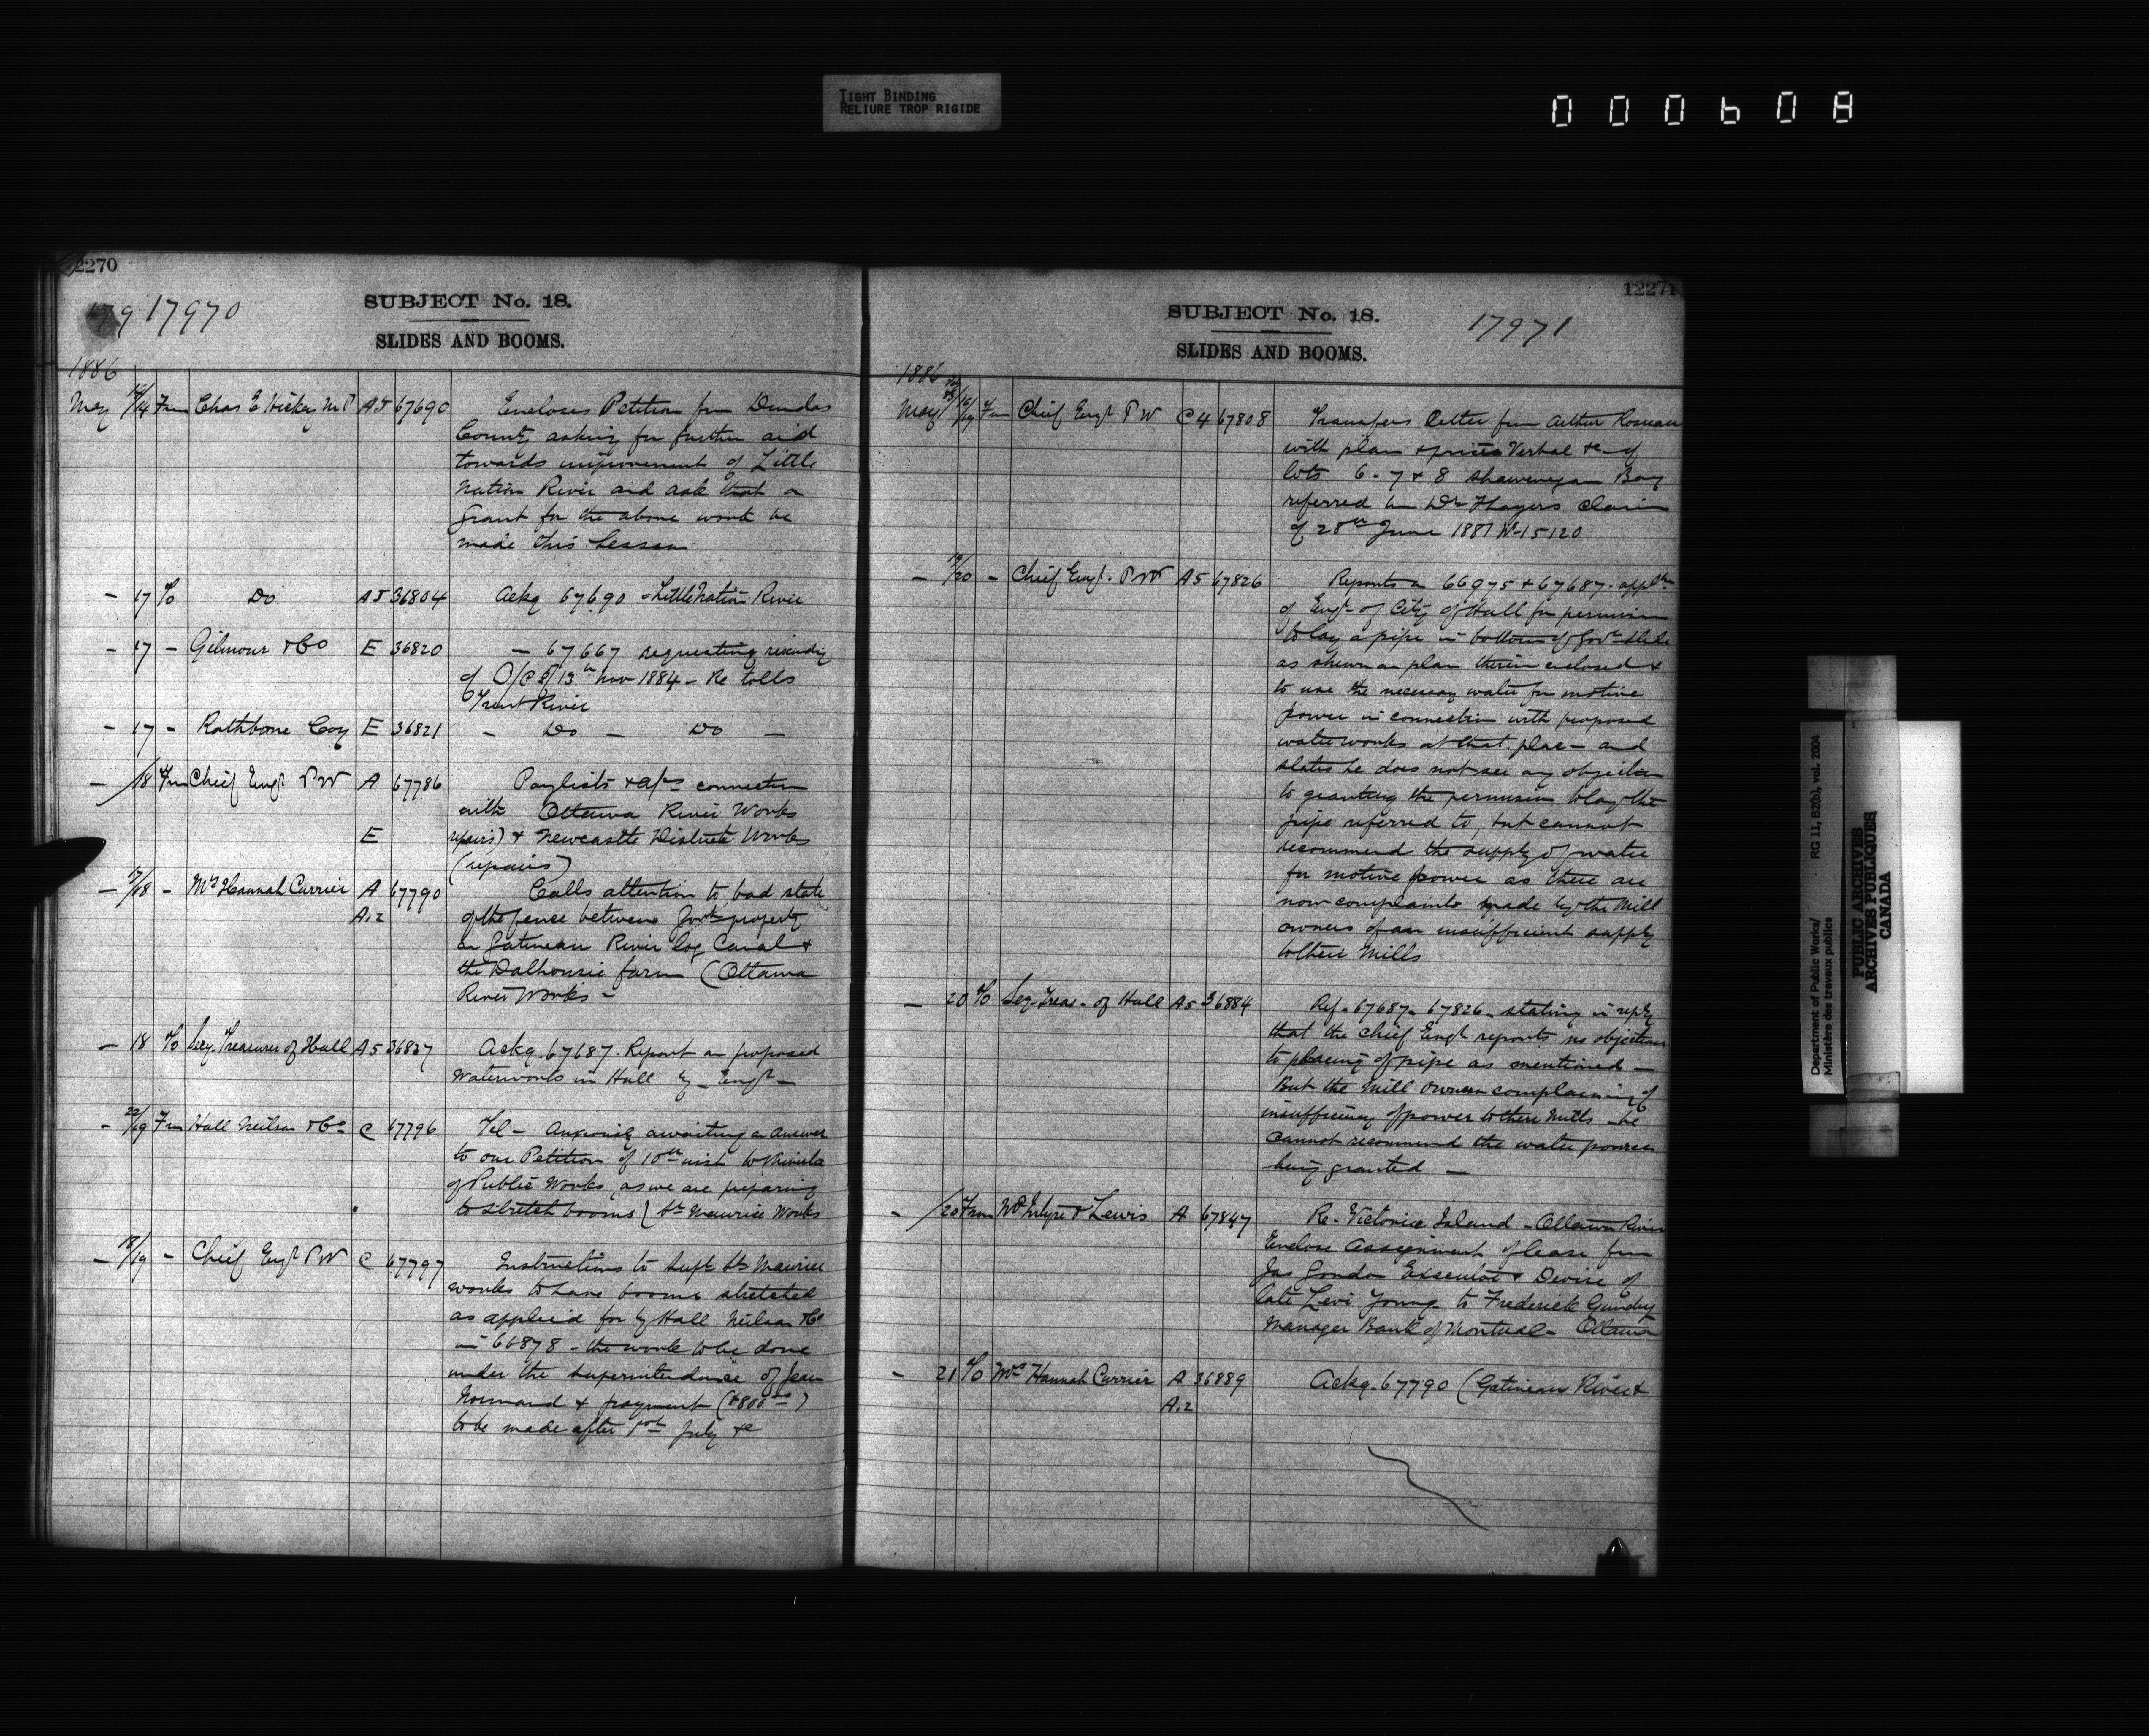 TIGHT BINDING
RELIURE TROP RIGIDE
000608
12270
17970
SUBJECT No. 18.
SLIDES AND BOOMS.
1886
May 14 Fm Chas E Hickey MP A5 67690 Encloses Petition from Dundas
County asking for further aid
towards improvement of Little
Nation River and ask that a
Grant for the above work be
made this Session
- 17 To Do A5 36804 Ackg 67690 - Little Nation River
- 17 - Gilmour & Co E 36820 - 67667 requesting rescinding
of O/C of 13th Nov 1884 - Re tolls
Trent River
- 17 - Rathbone Coy E 36821 - Do - Do -
- /18 Fm Chief Engr PW A 67786 Paylists & a/cs connection
with Ottawa River Works
E repairs) & Newcastle District Works
(repairs)
- 17/18 - Mrs Hannah Currier A 67790 Calls attention to bad state
A.2 of the fence between Govt property
on Gatineau River log Canal &
the Dalhousie farm (Ottawa
River Works -
- 18 To Secy. Treasurer of Hull A5 36837 Ackg. 67687. Report on proposed
Waterworks in Hull by Engr -
- 22/19 Fm Hall Neilson & Co C 67796 Tel - Anxiously awaiting an answer
to our Petition of 10th inst to Minister
of Public Works, as we are preparing
to stretch booms (St Maurice Works
- 18/19 - Chief Engr PW C 67797 Instructions to Supt St Maurice
works to have booms stretched
as applied for by Hall Neilson & Co
in 66878 - the work to be done
under the superintendence of Jean
Normand & payment ($800.00)
to be made after 1st July &c
12271
SUBJECT No. 18.
17971
SLIDES AND BOOMS.
1886
May 19 Fm Chief Engr PW C4 67808 Transfers Letter from Arthur Rousseau
with plan & procès Verbal &c of
lots 6 - 7 & 8 Shawenegan Bay
referred in Dr Thayers Claim
of 28th June 1881 No 15120
- 19/20 - Chief Engr. PW A5 67826 Reports on 66975 & 67687. appltn
of Engr of City of Hull for permission
to lay a pipe in bottom of Govt slide
as shewn on plan therein enclosed &
to use the necessary water for motive
power in connection with proposed
waterworks at that place - and
states he does not see any objection
to granting the permission to lay the
pipe referred to, but cannot
recommend the supply of water
for motive power as there are
now complaints made by the Mill
owners of an insufficient supply
to their Mills
- 20 To Secy Treas - of Hull A5 36884 Ref. 67687. 67826. stating in reply
that the Chief Engr reports no objections
to placing of pipe as mentioned -
But the Mill Owners complaining of
insufficiency of power to their Mills - he
cannot recommend the water power
being granted -
- /20 From McIntyre & Lewis A 67847 Re. Victoria Island - Ottawa River
Enclose Assignment of lease from
Jas Gordon Executor & Devise of
late Levi Young to Frederick Gundry
Manager Bank of Montreal - Ottawa
- 21 To Mrs Hannah Currier A 36889 Ackg. 67790 (Gatineau River &
A.2
Department of Public Works/
Ministère des travaux publics
RG 11, B2(b), vol. 2004
PUBLIC ARCHIVES
ARCHIVES PUBLIQUES
CANADA